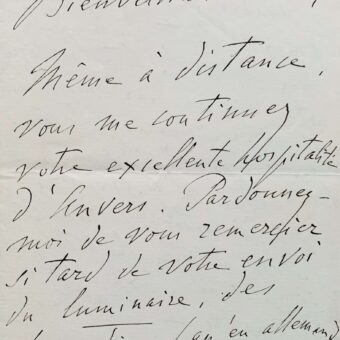 Même à distance,
vous me continuez
votre excellente hospitalité
d'Anvers. Pardonnez-
moi de vous remercier
si tard de votre envoi
du luminaire, des
qu'en allemand